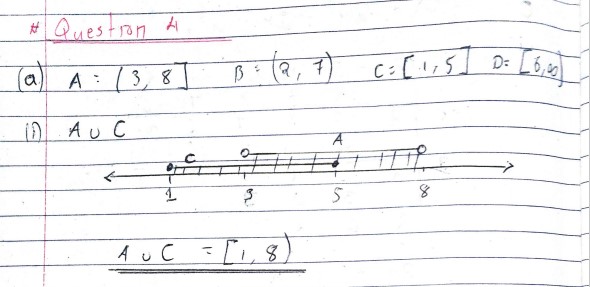 # Question 4
(a) A = (3, 8] B = (2, 7) C = [1, 5] D = [6, ∞)
(i) A ∪ C
A
C
1 3 5 8
A ∪ C = [1, 8)